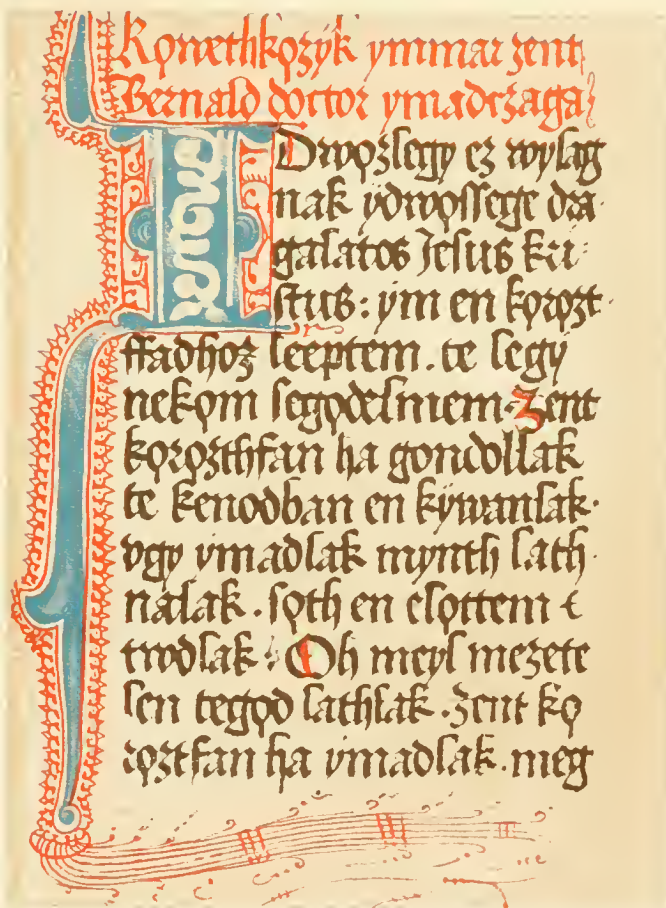 Kowethkozyk ymmar zent
Bernald doctor ymadczaga
IDwozlegy ez wylag
nak ydwossege dra
galatos Jesus kri
stus : ym en korozt
ffadhoz leeptem . te legy
nekom segodelmem . Zent
korozthfan ha gondollak
te kenodban en kywansak .
vgy ymadlak mynth lath
nalak . soth en elottem t
twdlak : Oh meyl mezete
len tegod lathlak . zent ko
roztfan ha ymadlak . meg